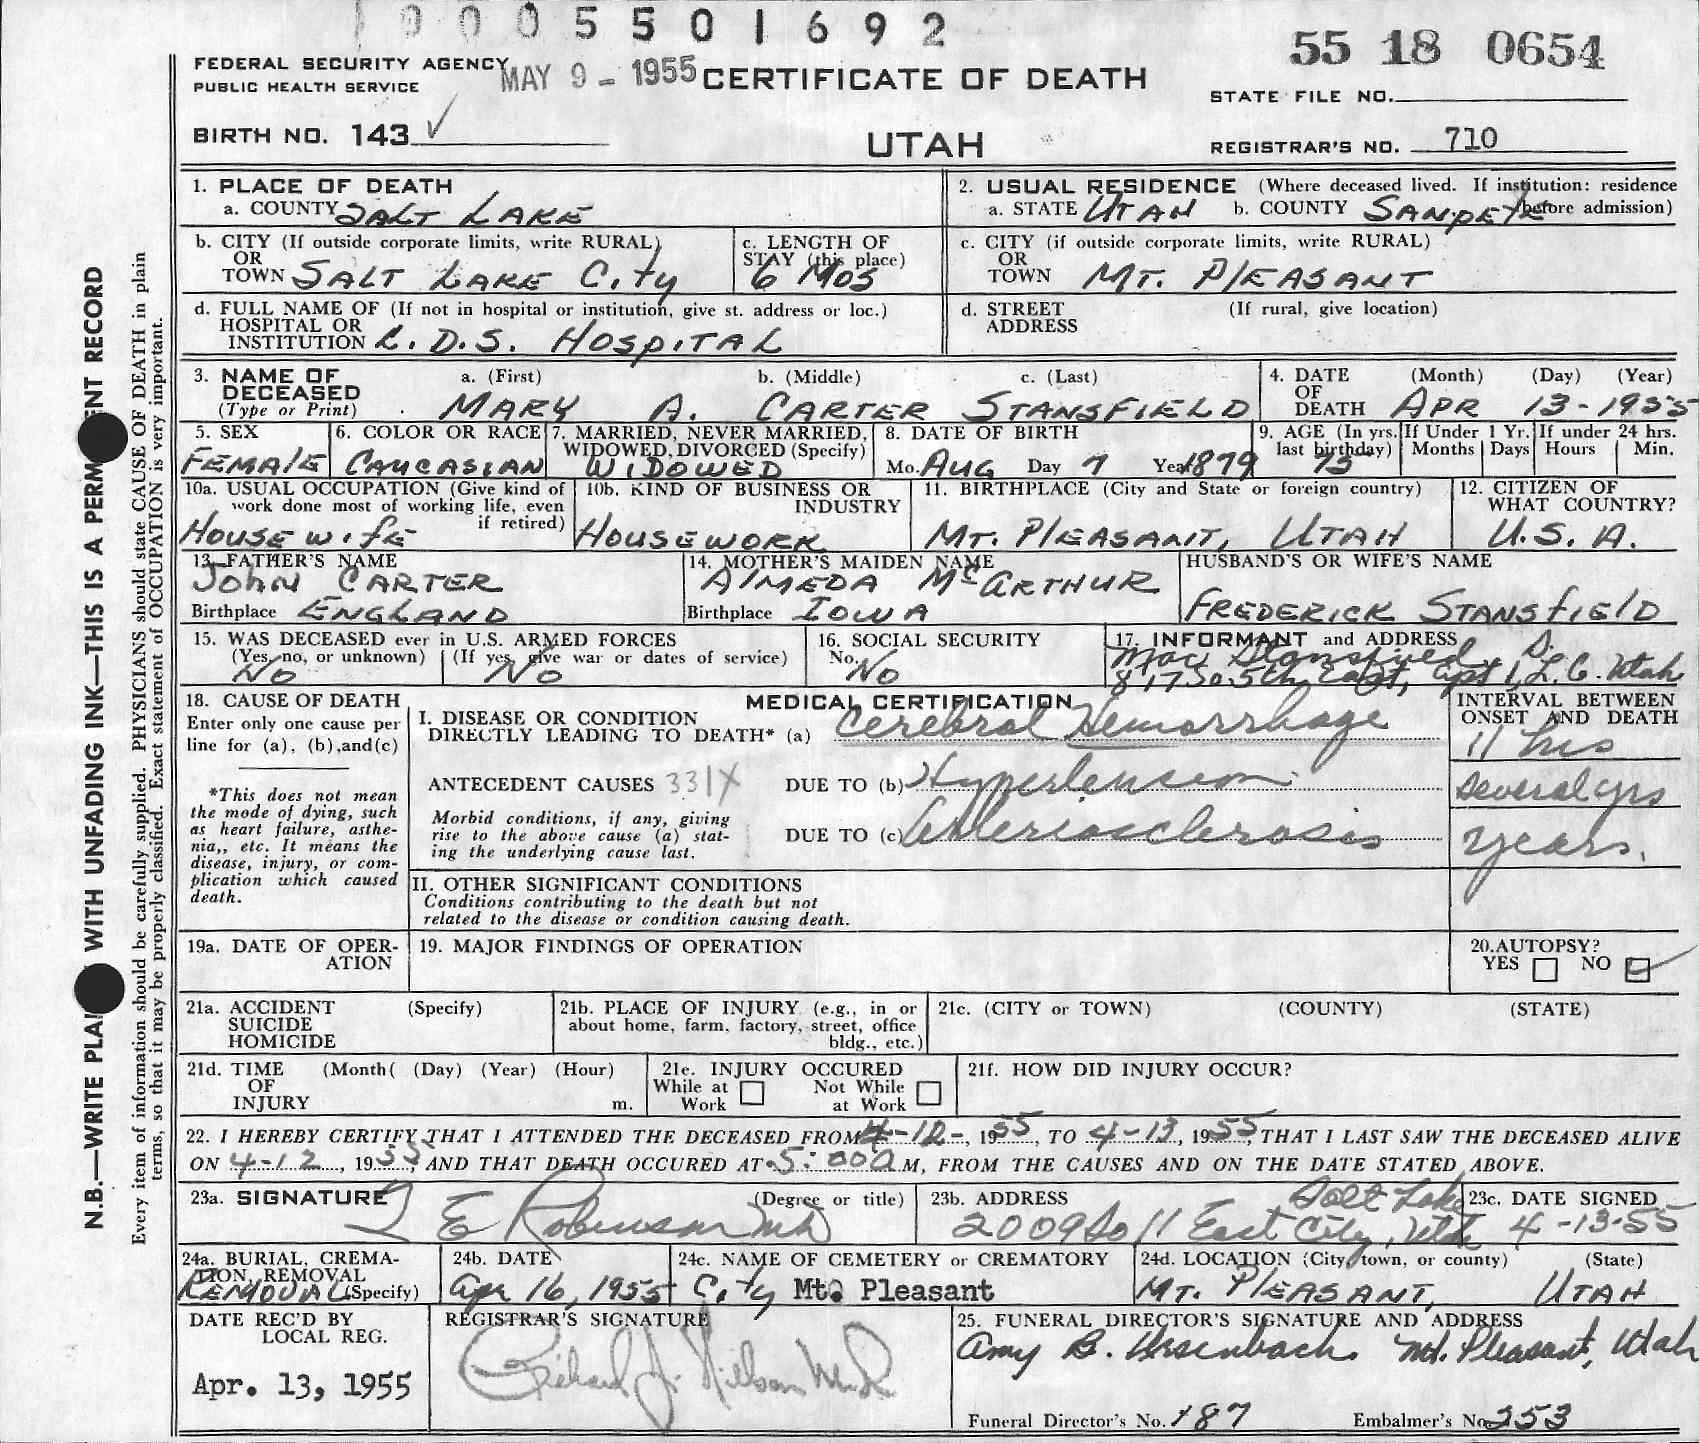 1900550 1692
55 18 0654
FEDERAL SECURITY AGENCY
PUBLIC HEALTH SERVICE
MAY 9 - 1955
CERTIFICATE OF DEATH
STATE FILE NO.
BIRTH NO. 143 ✓
UTAH
REGISTRAR'S NO. 710
N.B.—WRITE PLAI WITH UNFADING INK—THIS IS A PERM ENT RECORD
Every item of information should be carefully supplied. PHYSICIANS should state CAUSE OF DEATH in plain
terms, so that it may be properly classified. Exact statement of OCCUPATION is very important.
1. PLACE OF DEATH
a. COUNTY SALT LAKE
2. USUAL RESIDENCE (Where deceased lived. If institution: residence
a. STATE UTAH b. COUNTY SANPETE before admission)
b. CITY (If outside corporate limits, write RURAL)
OR
TOWN SALT LAKE CITY
c. LENGTH OF
STAY (this place)
6 MOS
c. CITY (if outside corporate limits, write RURAL)
OR
TOWN MT. PLEASANT
d. FULL NAME OF (If not in hospital or institution, give st. address or loc.)
HOSPITAL OR
INSTITUTION L. D. S. HOSPITAL
d. STREET (If rural, give location)
ADDRESS
3. NAME OF DECEASED a. (First) b. (Middle) c. (Last)
(Type or Print) MARY A. CARTER STANSFIELD
4. DATE (Month) (Day) (Year)
OF
DEATH APR 13-1955
5. SEX
FEMALE
6. COLOR OR RACE
CAUCASIAN
7. MARRIED, NEVER MARRIED,
WIDOWED, DIVORCED (Specify)
WIDOWED
8. DATE OF BIRTH
Mo. AUG Day 7 Year 1879
9. AGE (In yrs. last birthday) 75
If Under 1 Yr. Months Days
If under 24 hrs. Hours Min.
10a. USUAL OCCUPATION (Give kind of
work done most of working life, even
if retired)
HOUSEWIFE
10b. KIND OF BUSINESS OR
INDUSTRY
HOUSEWORK
11. BIRTHPLACE (City and State or foreign country)
MT. PLEASANT, UTAH
12. CITIZEN OF
WHAT COUNTRY?
U.S.A.
13. FATHER'S NAME
JOHN CARTER
Birthplace ENGLAND
14. MOTHER'S MAIDEN NAME
ALMEDA McARTHUR
Birthplace IOWA
HUSBAND'S OR WIFE'S NAME
FREDERICK STANSFIELD
15. WAS DECEASED ever in U.S. ARMED FORCES
(Yes, no, or unknown) (If yes, give war or dates of service)
No No
16. SOCIAL SECURITY
No. No
17. INFORMANT and ADDRESS
Mac Stansfield S.
817 So. 5th East, Apt 1, L.C. Utah
18. CAUSE OF DEATH
Enter only one cause per
line for (a), (b), and (c)
*This does not mean
the mode of dying, such
as heart failure, asthe-
nia,, etc. It means the
disease, injury, or com-
plication which caused
death.
MEDICAL CERTIFICATION
I. DISEASE OR CONDITION
DIRECTLY LEADING TO DEATH* (a) Cerebral Hemorrhage
ANTECEDENT CAUSES 331X DUE TO (b) Hypertension
Morbid conditions, if any, giving
rise to the above cause (a) stat-
ing the underlying cause last.
DUE TO (c) Arteriosclerosis
INTERVAL BETWEEN
ONSET AND DEATH
11 hrs
Several yrs
years.
II. OTHER SIGNIFICANT CONDITIONS
Conditions contributing to the death but not
related to the disease or condition causing death.
19a. DATE OF OPER-
ATION
19. MAJOR FINDINGS OF OPERATION
20. AUTOPSY?
YES NO ✓
21a. ACCIDENT (Specify)
SUICIDE
HOMICIDE
21b. PLACE OF INJURY (e.g., in or
about home, farm, factory, street, office
bldg., etc.)
21c. (CITY or TOWN) (COUNTY) (STATE)
21d. TIME (Month( (Day) (Year) (Hour)
OF
INJURY m.
21e. INJURY OCCURED
While at Work Not While at Work
21f. HOW DID INJURY OCCUR?
22. I HEREBY CERTIFY THAT I ATTENDED THE DECEASED FROM 4-12-, 1955, TO 4-13, 1955, THAT I LAST SAW THE DECEASED ALIVE
ON 4-12, 1955, AND THAT DEATH OCCURED AT 5:00 A M, FROM THE CAUSES AND ON THE DATE STATED ABOVE.
23a. SIGNATURE (Degree or title)
E Robinson MD
23b. ADDRESS
2009 So 11 East Salt Lake City, Utah
23c. DATE SIGNED
4-13-55
24a. BURIAL, CREMA-
TION, REMOVAL
REMOVAL (Specify)
24b. DATE
Apr 16, 1955
24c. NAME OF CEMETERY or CREMATORY
City Mt. Pleasant
24d. LOCATION (City, town, or county) (State)
MT. PLEASANT, UTAH
DATE REC'D BY
LOCAL REG.
Apr. 13, 1955
REGISTRAR'S SIGNATURE
Richard J. Nilson M.D.
25. FUNERAL DIRECTOR'S SIGNATURE AND ADDRESS
Amy B. Ursenbach Mt. Pleasant, Utah
Funeral Director's No. 187 Embalmer's No. 253